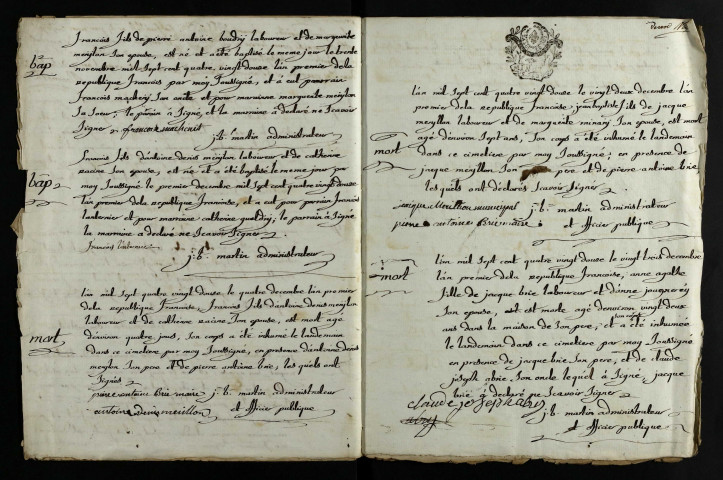 bap
françois fils de pierre antoine boudry laboureur et de marguerite
meyllon son epouse, est né et a été baptisé le meme jour le trente
novembre mil sept cent quatre vingt douze lan premier de la
republique françois par moy soussigné, et a eut pour parrain
françois son oncle et pour marainne marguerite meyllon
sa soeur, le parain a signé, et la marainne a declaré ne scavoir
signer.
j: b: martin administrateur
bap
françois fils d'antoine denis meyllon laboureur et de catherine
racine son epouse, est né et a été baptisé le meme jour par
moy soussigné le premier decembre mil sept cent quatre vingt douze
lan premier de la republique françoise, et a eut pour parrain françois
et pour marrainne catherine le parrain a signé
la marainne a declaré ne scavoir signer
j: b: martin administrateur
mort
lan mil sept quatre vingt douze, le quatre decembre lan premier
de la republique françoise, françois fils d'antoine denis meyllon
laboureur et de catherine racine son epouse, est mort agé
d'environ quatre jours, son corps a été inhumé le landemain
dans ce cimetiere par moy soussigné, en presence d'antoine denis
meyllon son pere et de pierre antoine brie, lesquels ont
signés
pierre antoine brie maire j: b: martin administrateur
antoine denis meillon et officier publique
mort
lan mil sept cent quatre vingt douze le vingt deux decembre lan
premier de la republique françoise, jean baptiste fils de jacque
meyllon laboureur et de marguerite son epouse, est mort
agé d'environ sept ans, son corps a été inhumé le landemain
dans ce cimetiere par moy soussigné; en presence de
jacque meyllon son pere et de pierre antoine brie
lesquels ont déclarés scavoir signer
j: b: martin administrateur
pierre antoine brie maire et officier publique
mort
lan mil sept cent quatre vingt douze le vingt trois decembre
lan premier de la republique françoise, anne agathe
fille de jacque brie laboureur et d'anne
son epouse, est morte agé denviron vingt deux
ans dans la maison de son pere, et a été inhumée
le landemain dans ce cimetiere par moy soussigné
en presence de jacque brie son pere, et de claude
joseph abrie son oncle lequel a signé, jacque
brie a declaré ne scavoir signer
claude joseph abry
j: b: martin administrateur
et officier publique